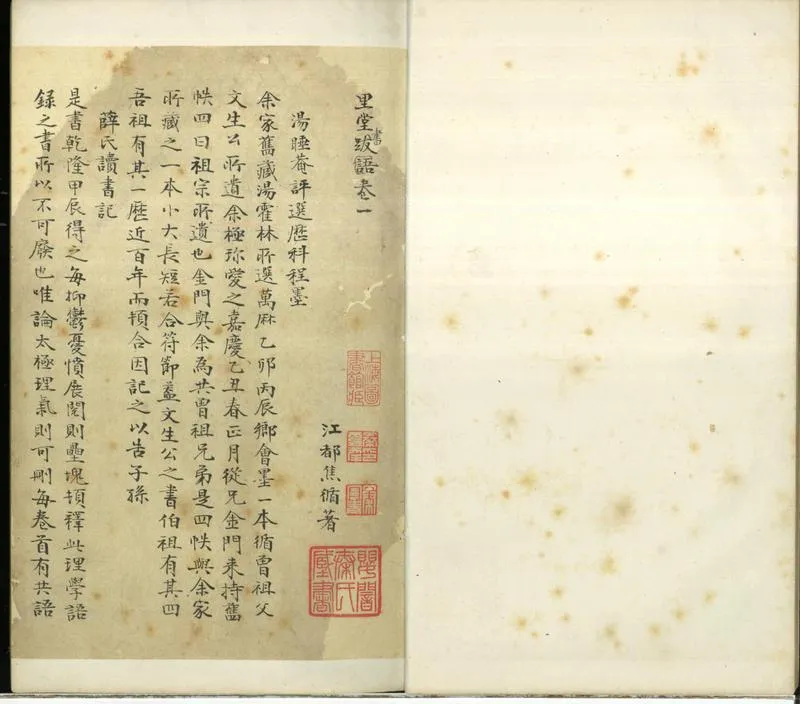 里堂書跋語卷一
江都焦循著
湯睡菴評選歷科程墨
余家舊藏湯霍林所選萬厤乙卯丙辰鄉會墨一本循曾祖父
文生公所遺余極珎愛之嘉慶乙丑春正月從兄金門来持舊
帙四曰祖宗所遺也金門與余為共曾祖兄弟是四帙與余家
所藏之一本小大長短若合符節盖文生公之書伯祖有其四
吾祖有其一歷近百年而頓合因記之以告子孫
薛氏讀書記
是書乾隆甲辰得之每抑鬱憂憤展閱則壘塊頓釋此理學語
錄之書所以不可廢也唯論太極理氣則可刪每卷首有共語
上海圖書館藏